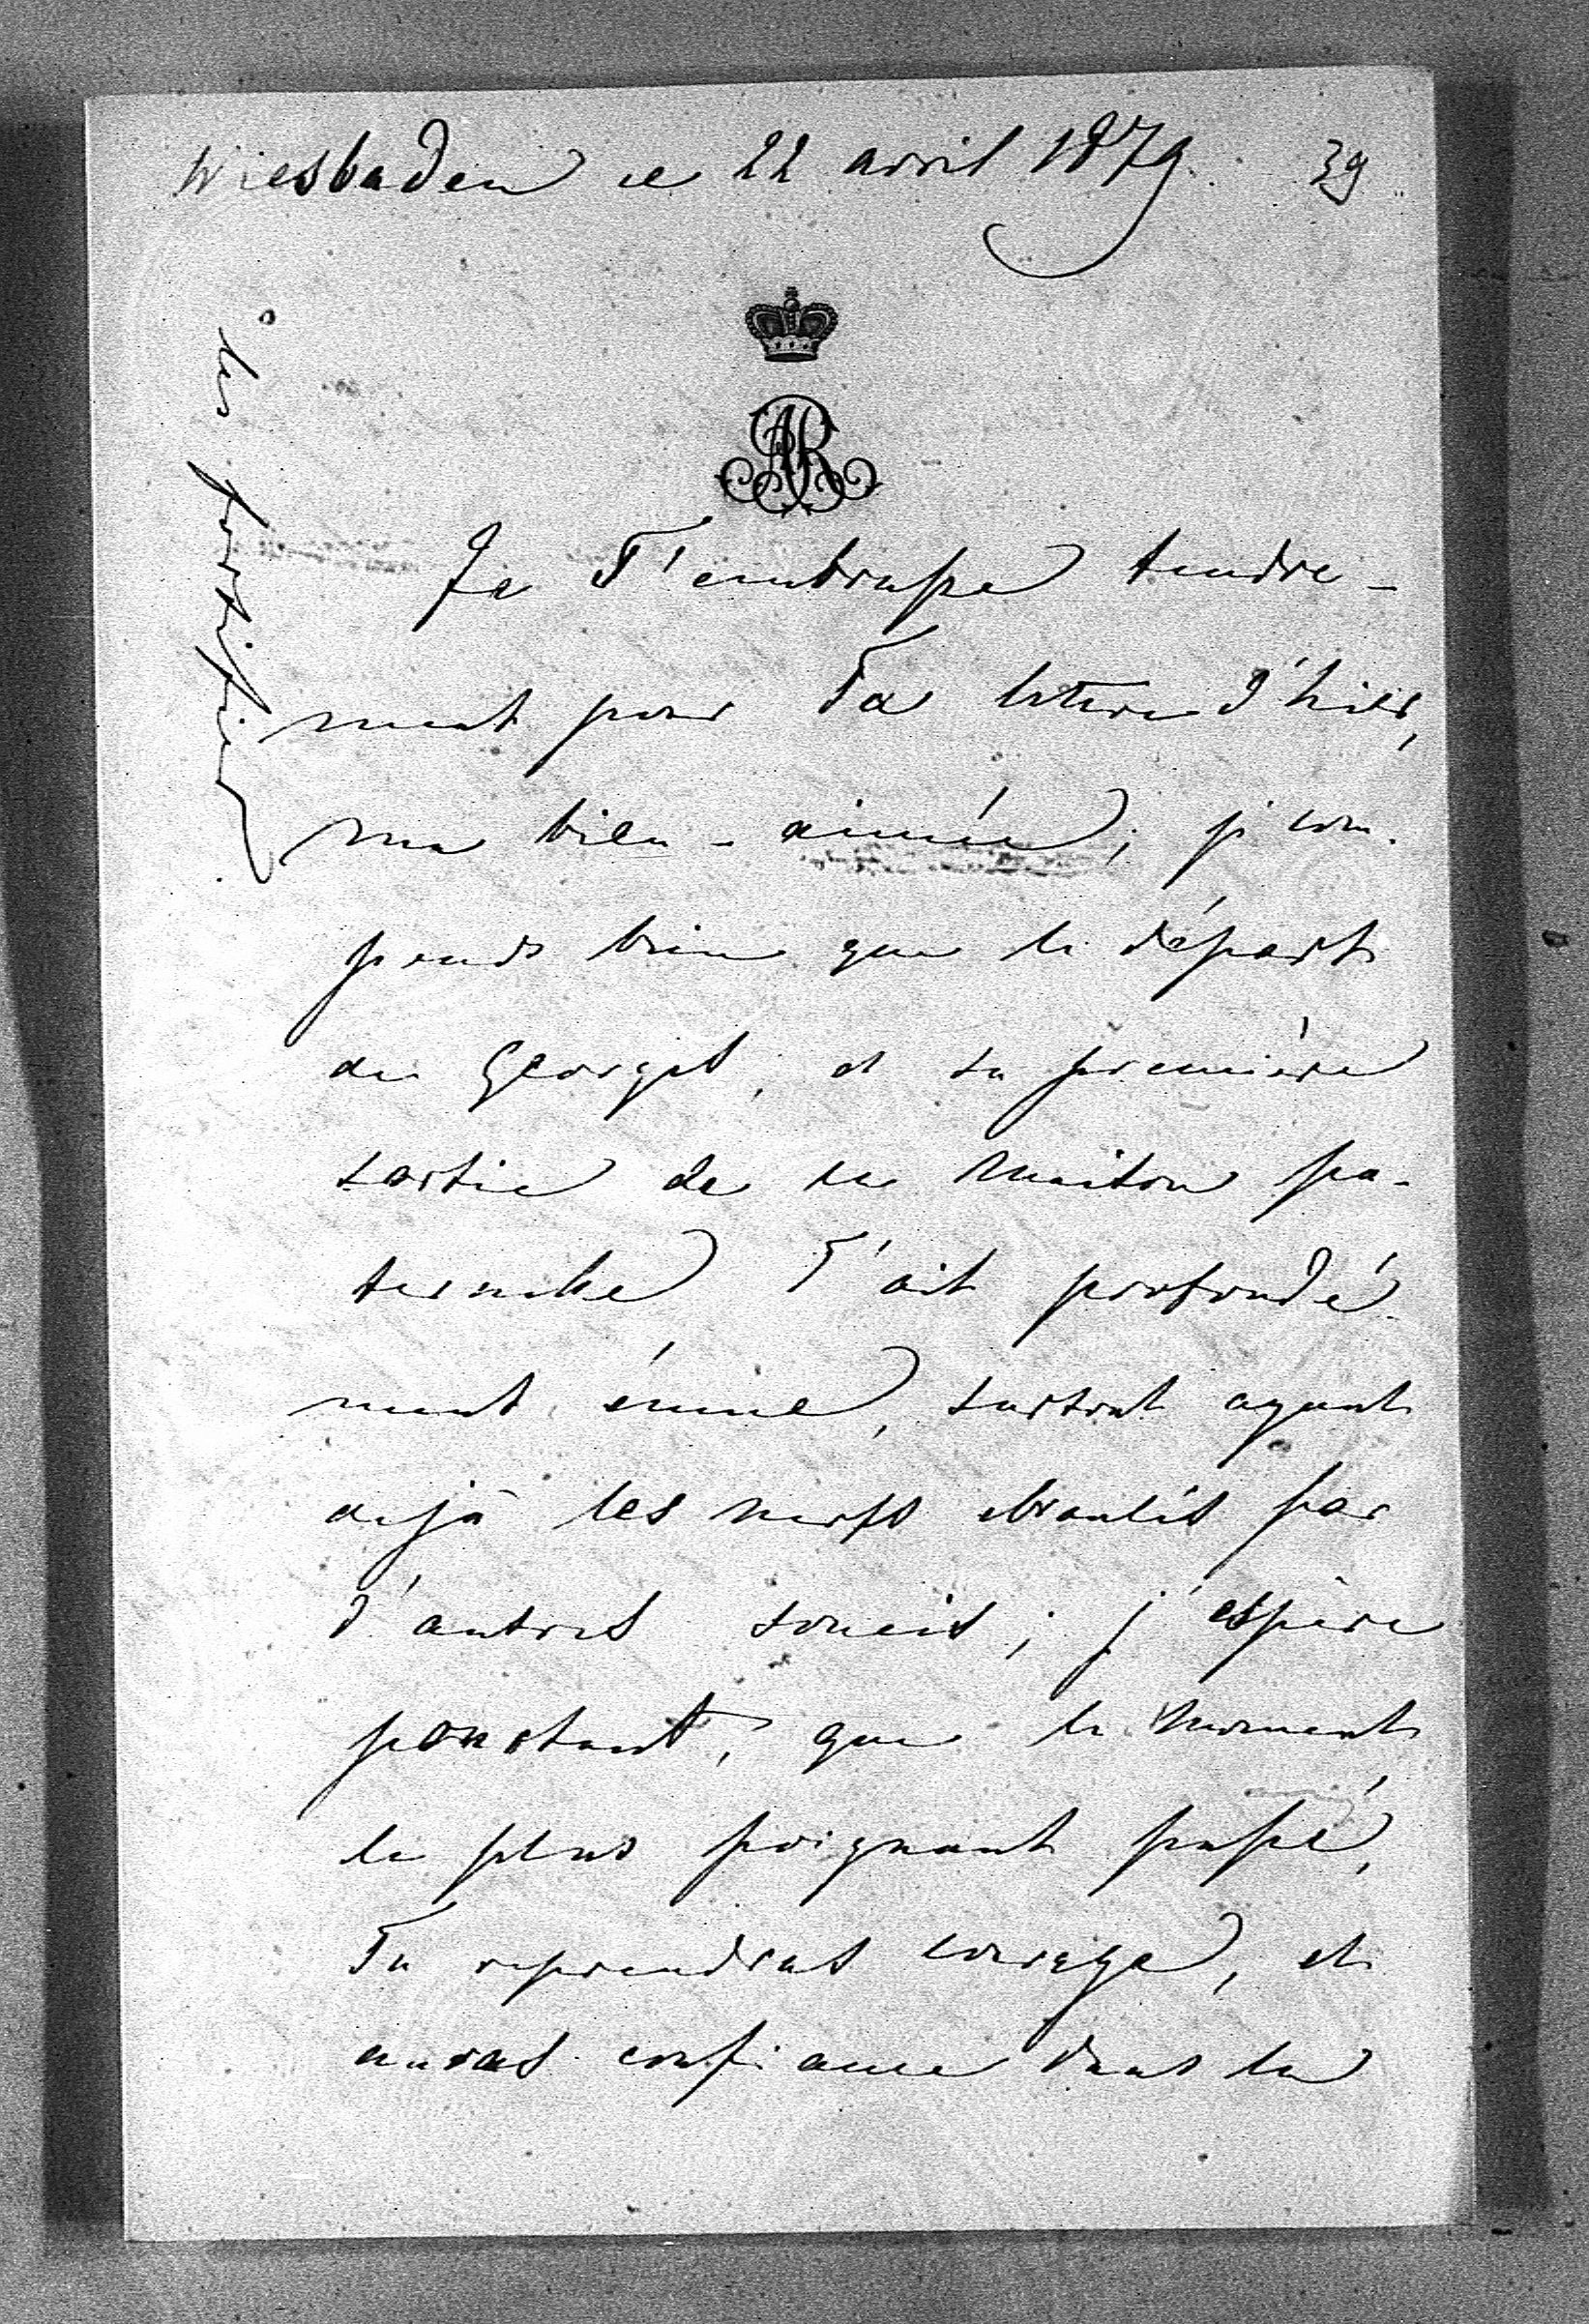 Wiesbaden le 22 avril 1879.
39
AR
Je T'embrasse tendre-
ment pour Ta lettre d'hier,
ma bien-aimée; je com-
prends bien que le départ
de Georges, et sa première
sortie de la maison pa-
ternelle T'ait profondé-
ment émue, surtout ayant
dejà les nerfs ebranlés par
d'autres soucis; j'espère
pourtant, que le moment
le plus poignant passé,
Tu reprendras courage, et
auras confiance dans la
les fortifier